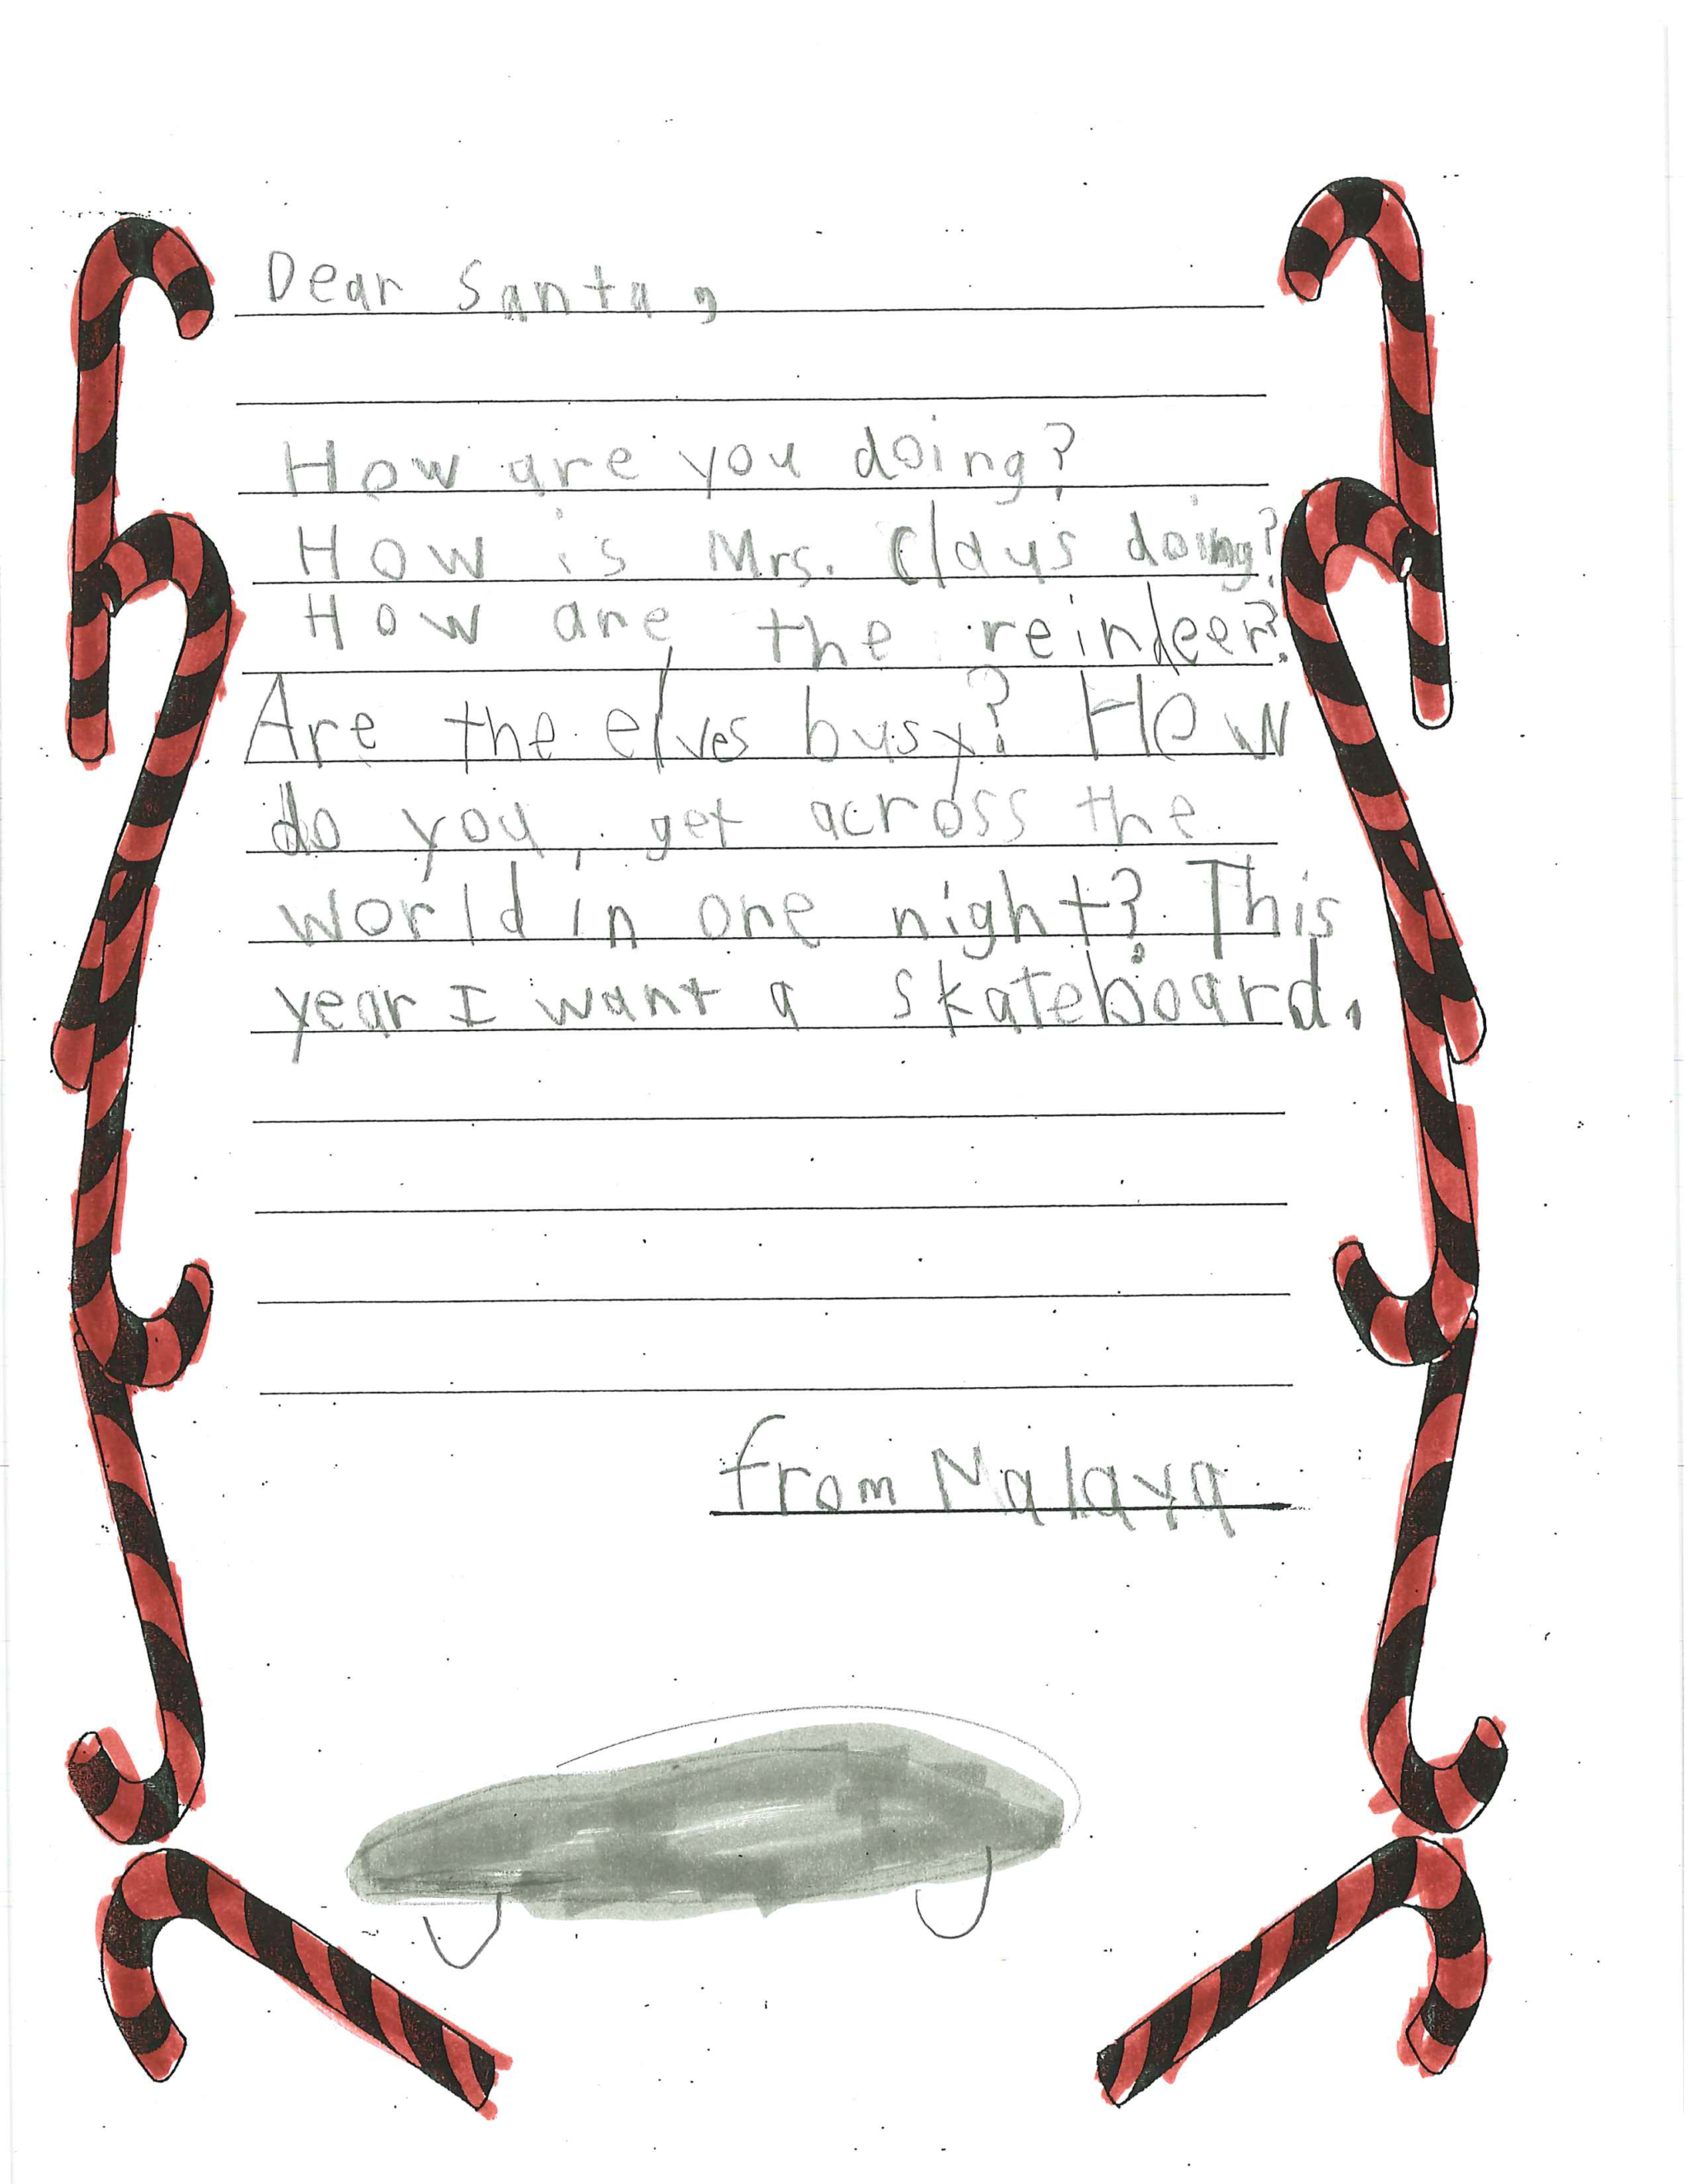 Dear Santa,
How are you doing?
How is Mrs. Claus doing?
How are the reindeer?
Are the elves busy? How
do you get across the
world in one night? This
year I want a skateboard.
from Malaya